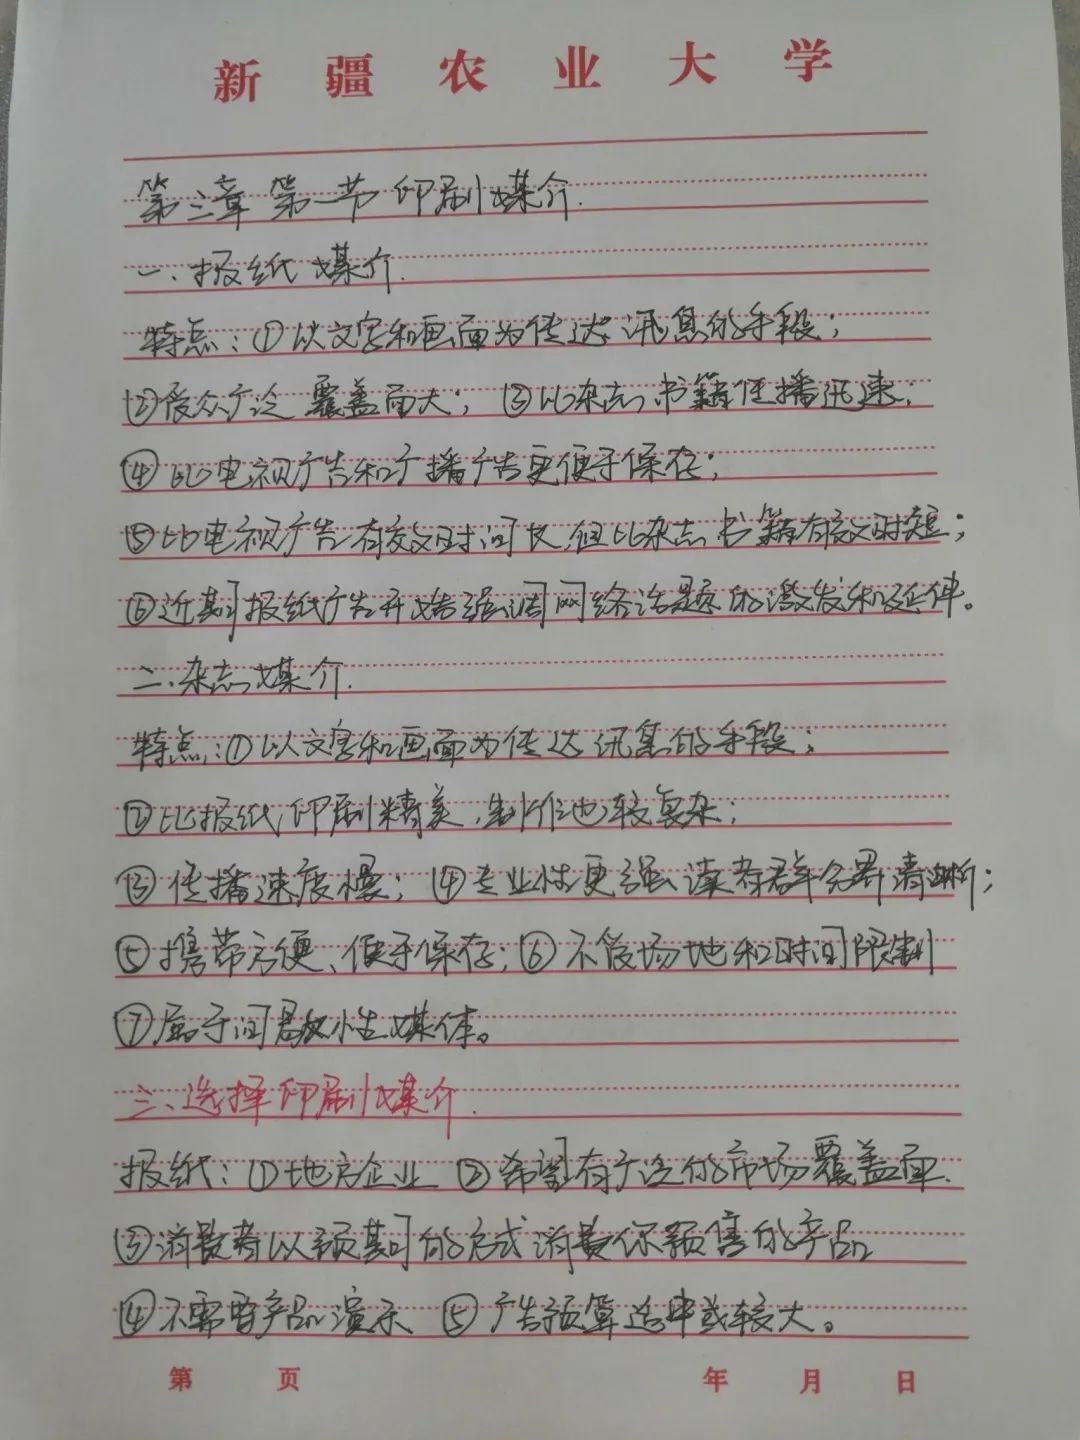 新疆农业大学
第三章 第一节 印刷媒介.
一、报纸媒介.
特点：①以文字和画面为传达讯息的手段；
②受众广泛 覆盖面大； ③比杂志、书籍传播迅速；
④比电视广告和广播广告更便于保存；
⑤比电视广告有效时间长,但比杂志、书籍有效时短；
⑥近期报纸广告开始强调网络话题的激发和延伸。
二、杂志媒介.
特点：①以文字和画面为传达讯息的手段；
②比报纸印刷精美,制作也较复杂；
③传播速度慢； ④专业性更强 读者群分界清晰；
⑤携带方便、便于保存；⑥不受场地和时间限制
⑦属于间歇性媒体。
三、选择印刷媒介.
报纸：①地方企业 ②希望有广泛的市场覆盖面.
③消费者以预期的方式消费你预售的产品
④不需要产品演示 ⑤广告预算适中或较大。
第 页 年 月 日